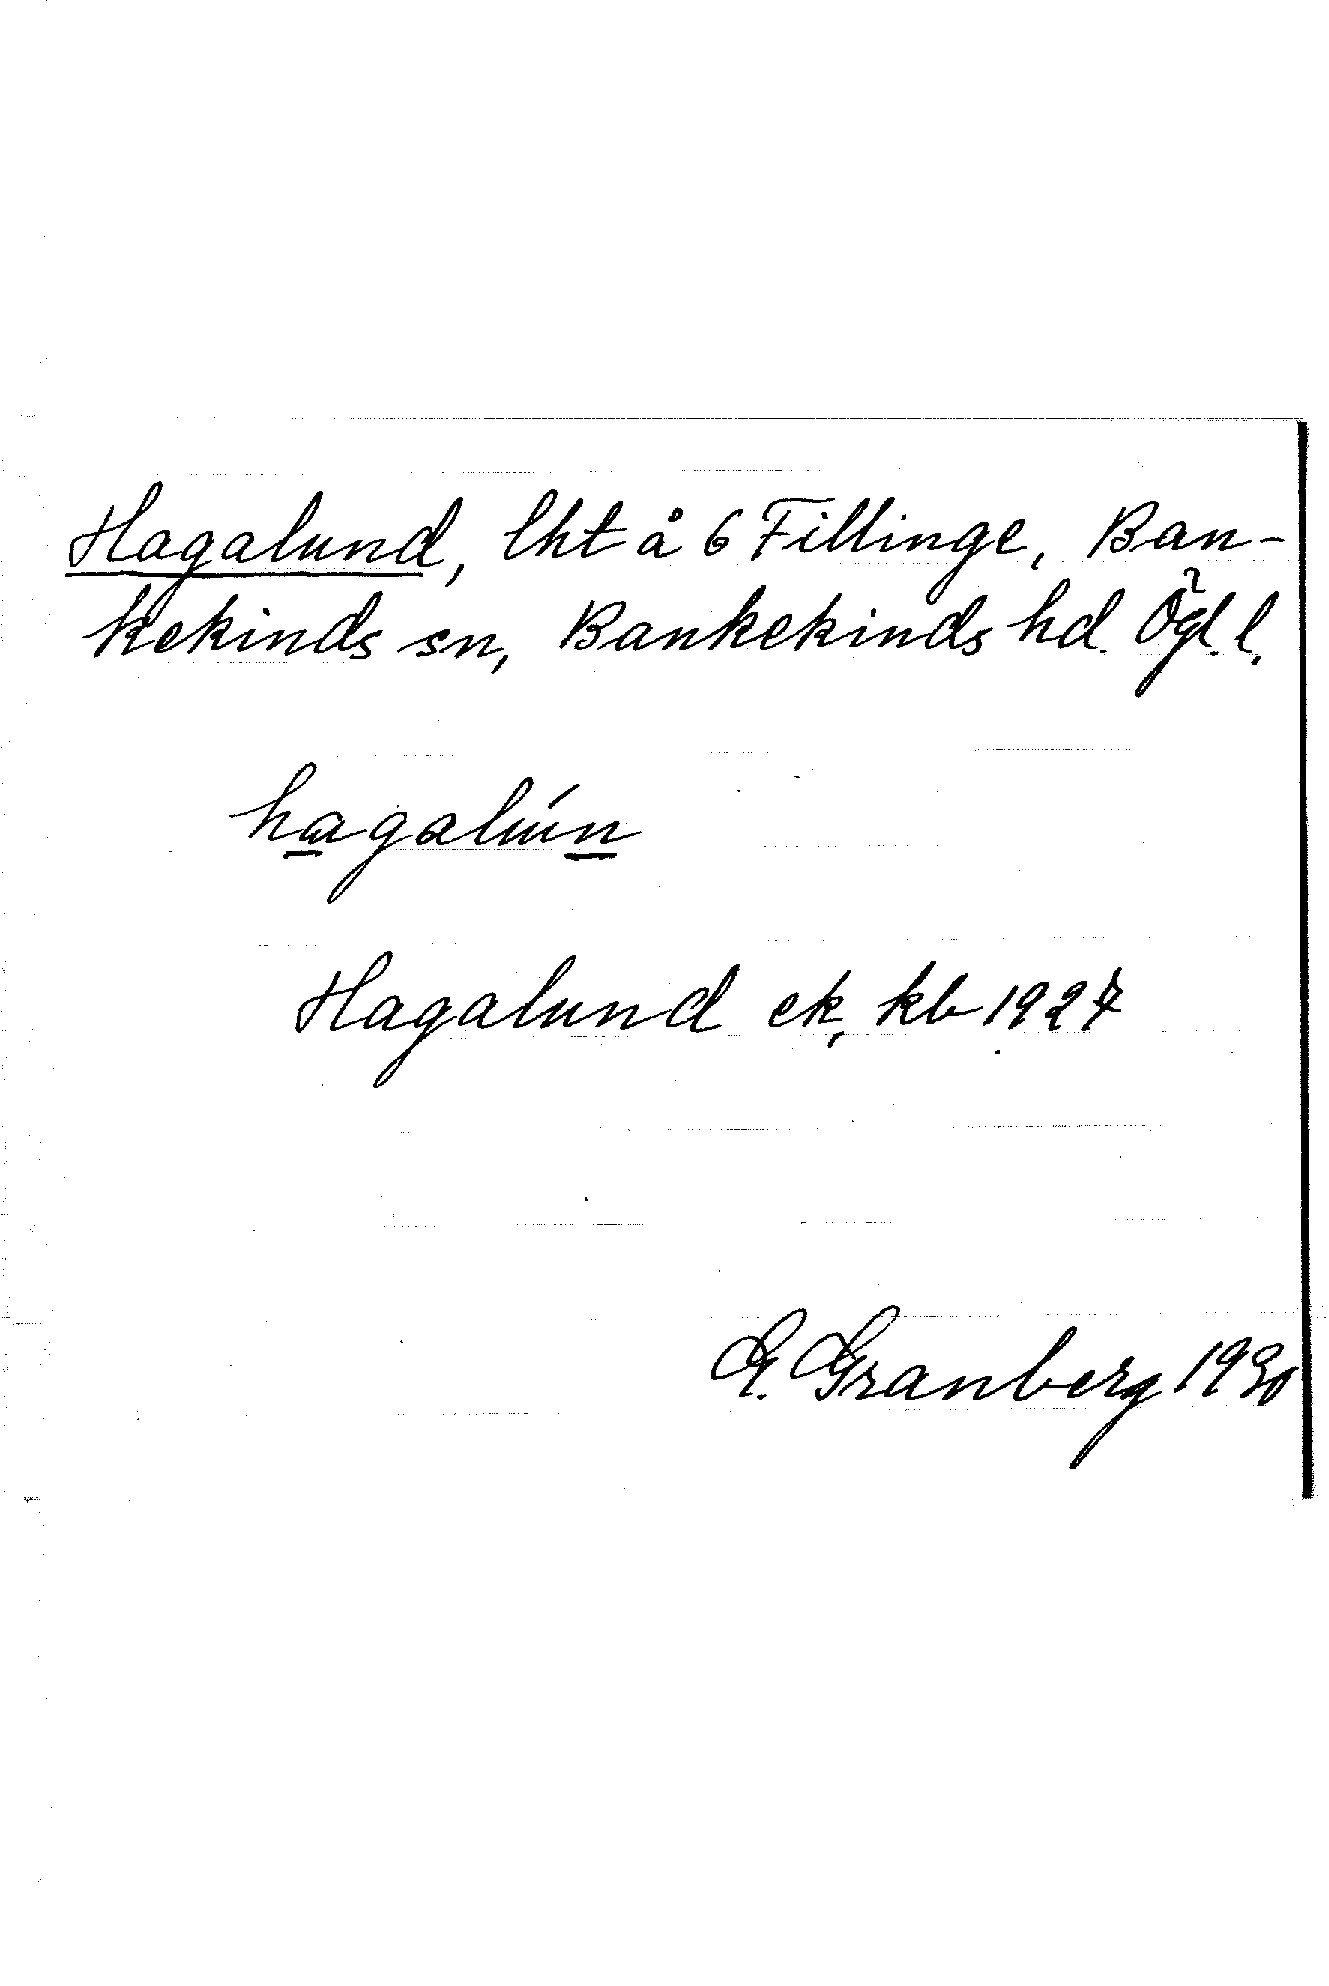 Hagalund, lht å 6 Fillinge, Ban-
kekinds sn, Bankekinds hd. Ögl. l.
hagalún
Hagalund ek, kb 1927
G. Granberg 1930